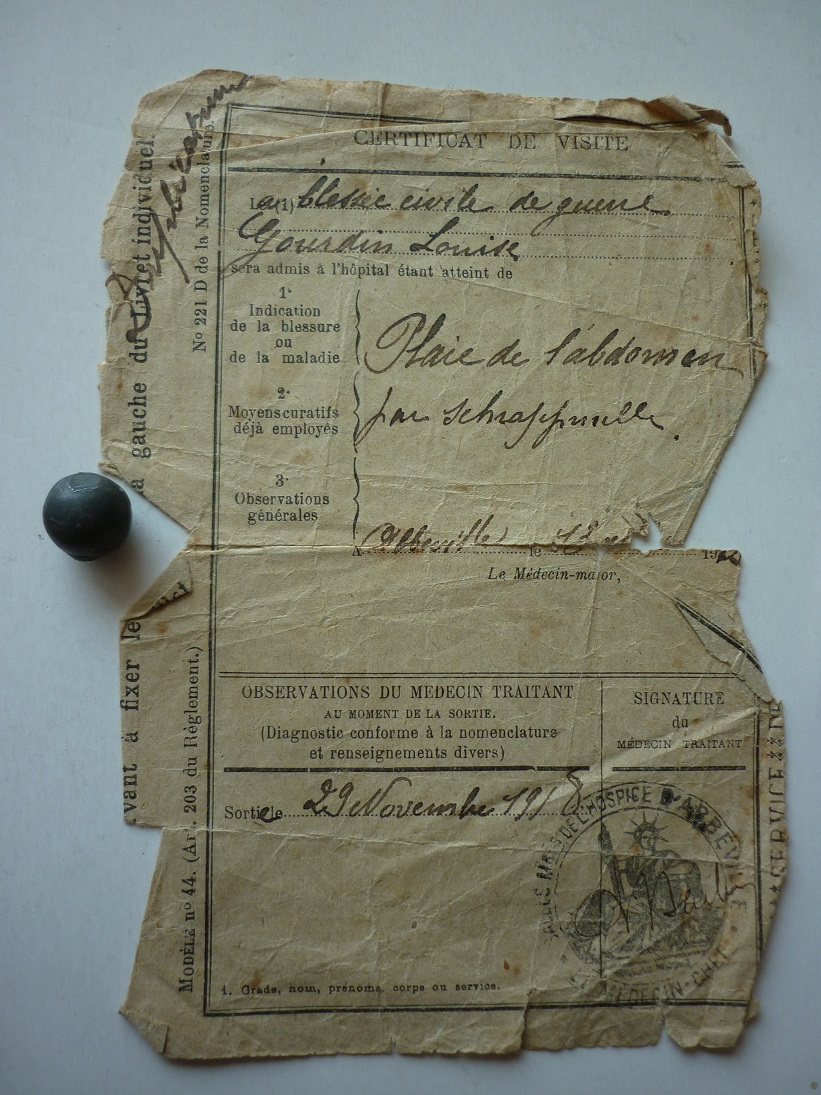 CERTIFICAT DE VISITE
La (1) blessée civile de guerre
Gourdin Louise
sera admis à l'hôpital étant atteint de
1°
Indication
de la blessure
ou
de la maladie
Plaie de l'abdomen
2°
Moyens curatifs
déjà employés
par schrappnelle
3°
Observations
générales
A Abbeville le 191
Le Médecin-major,
OBSERVATIONS DU MEDECIN TRAITANT
AU MOMENT DE LA SORTIE.
(Diagnostic conforme à la nomenclature
et renseignements divers)
SIGNATURE
du
MÉDECIN TRAITANT
Sortie le 29 Novembre 1918
1. Grade, nom, prénoms, corps ou service.
DE L'HOSPICE D'ABBEVILLE
MÉDECIN-CHEF
Duplicatum
gauche du Livret individuel.
N° 221 D de la Nomenclature.
vant à fixer le
MODÈLE n° 44. (Art. 203 du Règlement.)
SERVICE